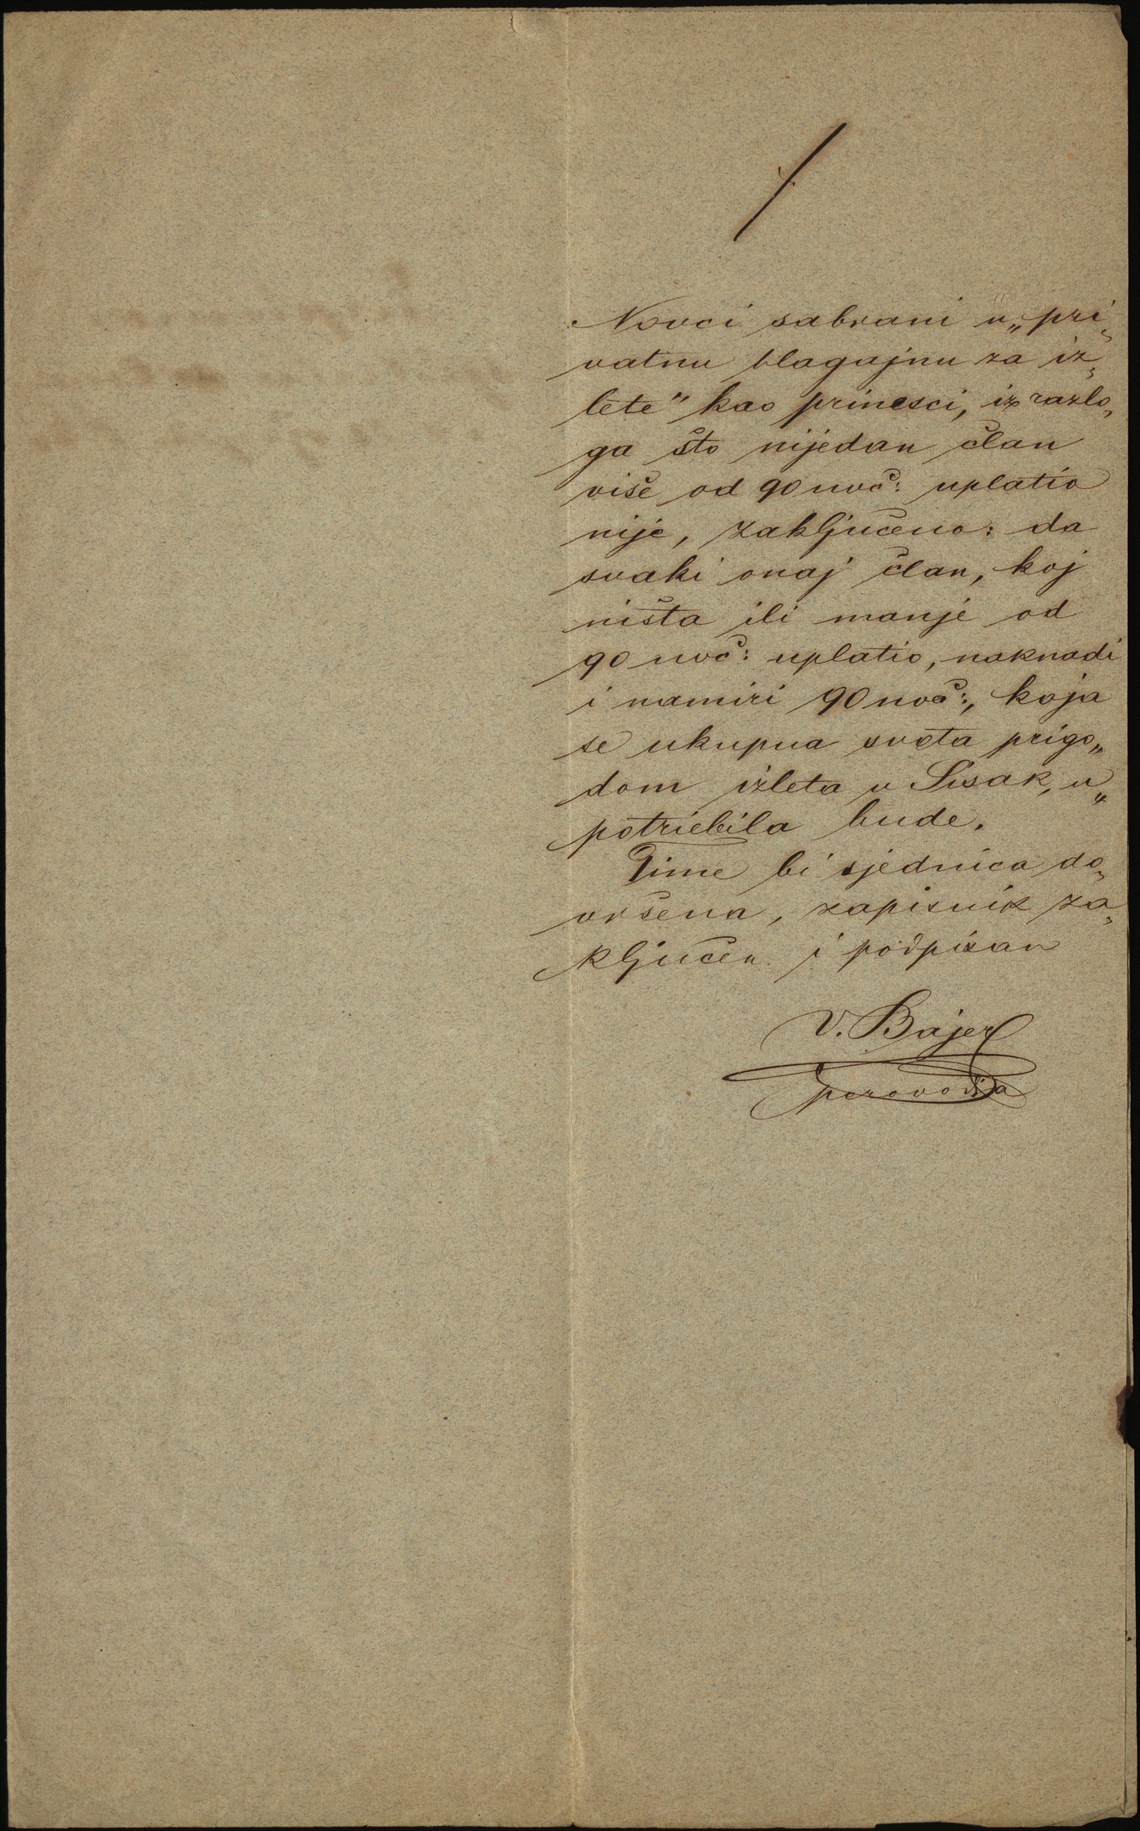 Novci sabrani u „pri„
vatnu blagajnu za iz„
lete" kao prinesci, iz razlo„
ga što nijedan član
više od 90 novč: uplatio
nije, zaključeno: da
svaki onaj član, koj
ništa ili manje od
90 novč: uplatio, naknadi
i namiri 90 novč:, koja
se ukupna svota prigo„
dom izleta u Sisak, u„
potriebila bude.
Time bi sjednica do„
vršena, zapisnik za„
ključen i podpisan
V. Bajer
perovodja